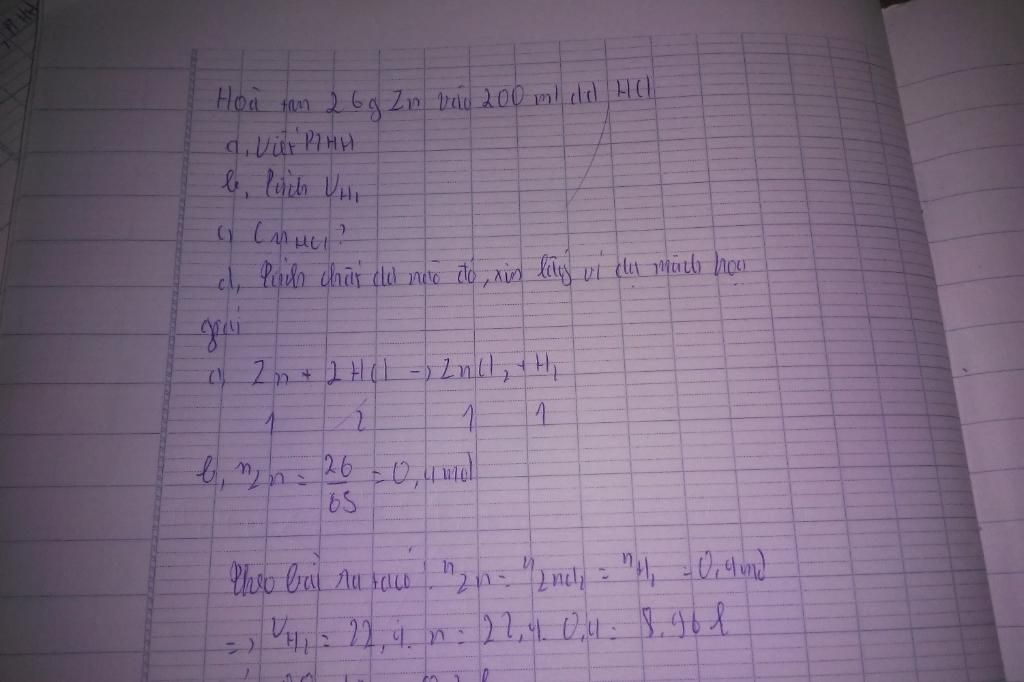 Hoà tan 26g Zn vào 200 ml dd HCl
a, Viết PTHH
b, Tính VH₂
c) CM HCl?
d, Tính chất dd nào đó, xin lấy ví dụ minh hoạ
giải
a) Zn + 2HCl → ZnCl₂ + H₂
1 2 1 1
b, nZn = 26/65 = 0,4 mol
Theo bài ra ta có: nZn = nZnCl₂ = nH₂ = 0,4 mol
=> VH₂ = 22,4. n = 22,4. 0,4 = 8,96 l